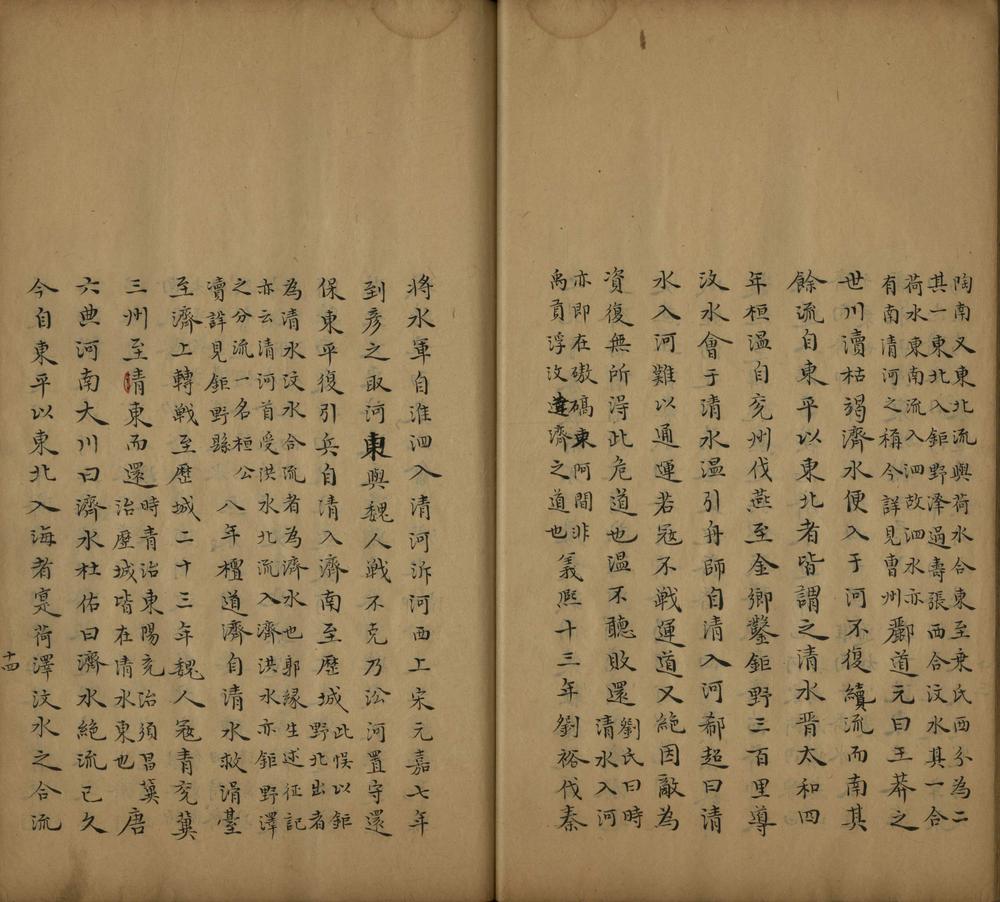 陶南又東北流與荷水合東至乗氏西分為二
其一東北入鉅野澤過壽張西合汶水其一合
荷水東南流入泗故泗水亦
有南清河之稱今詳見曹州
酈道元曰王莽之
世川瀆枯竭濟水便入于河不復續流而南其
餘流自東平以東北者皆謂之清水晉太和四
年桓溫自兖州伐燕至金鄉鑿鉅野三百里導
汶水會于清水溫引舟師自清入河郗超曰清
水入河難以通運若冦不戰運道又絶因敵為
資復無所淂此危道也溫不聽敗還
劉氏曰時
清水入河
亦即在磝碻東阿間非
禹貢浮汶達濟之道也
義熙十三年劉裕伐秦
將水軍自淮泗入清河泝河西上宋元嘉七年
到彥之取河東與魏人戰不克乃沿河置守還
保東平復引兵自清入濟南至歷城
此悞以鉅
野北出者
為清水汶水合流者為濟水也郭緣生述征記
亦云清河首受洪水北流入濟洪水亦鉅野澤
之分流一名桓公
瀆詳見鉅野縣
八年檀道濟自清水救滑臺
至濟上轉戰至歷城二十三年魏人冦青兖冀
三州至清東而還
時青治東陽兖治須昌冀
治歷城皆在清水東也
唐
六典河南大川曰濟水杜佑曰濟水絶流已久
今自東平以東北入海者寔荷澤汶水之合流
十四